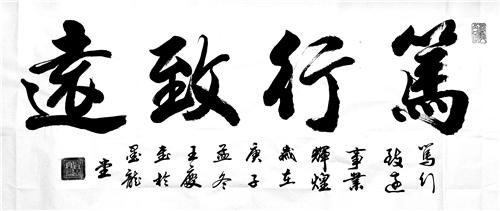 篤行致遠
篤行
致遠
事業
輝煌
歲在
庚子
孟冬
王慶
書於
墨龍
堂